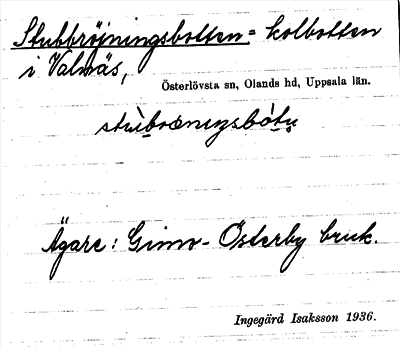 Stubbröjningsbotten = kolbotten
i Valmäs,
Österlövsta sn, Olands hd, Uppsala län.
Ägare: Gimo-Österby bruk.
Ingegärd Isaksson 1936.